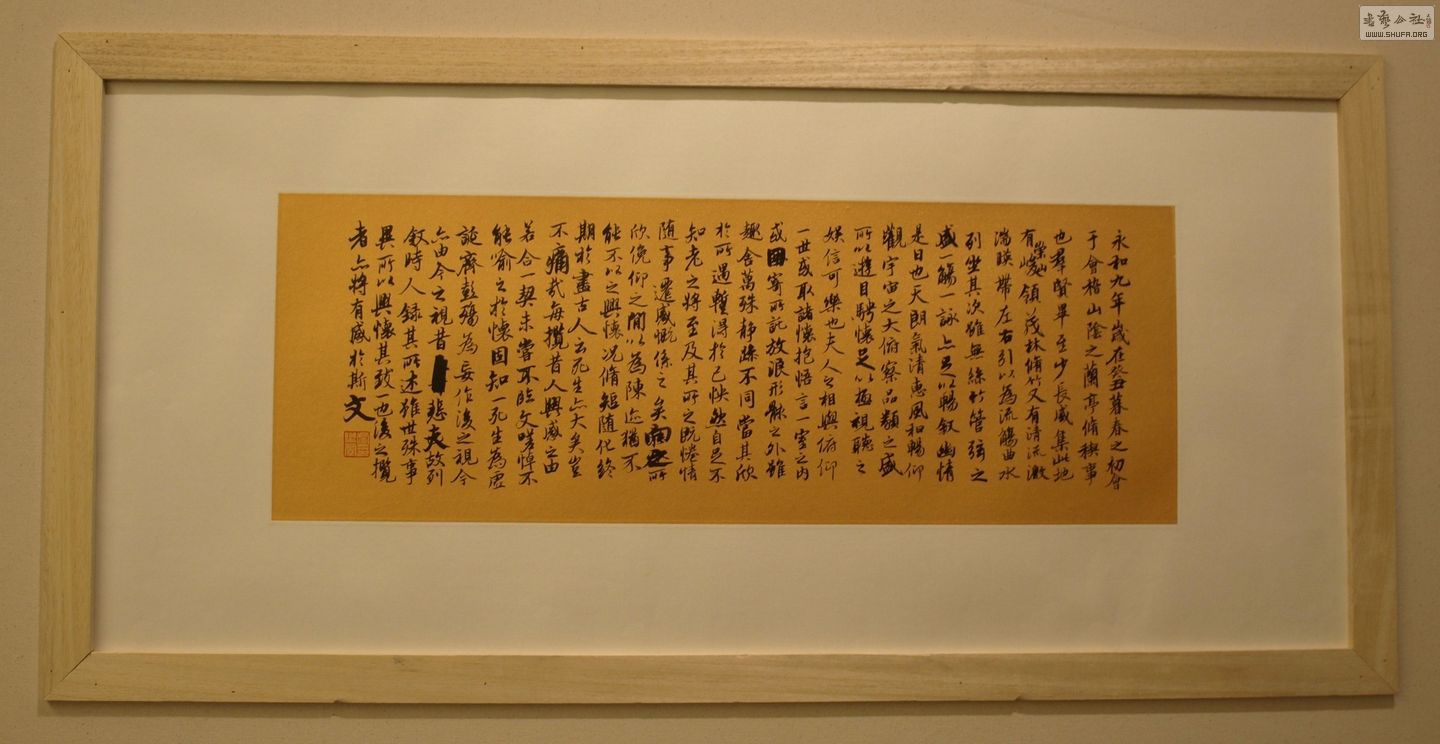 永和九年歲在癸丑暮春之初會
于會稽山陰之蘭亭脩稧事
也羣賢畢至少長咸集此地
有崇山峻領茂林脩竹又有清流激
湍暎帶左右引以為流觴曲水
列坐其次雖無絲竹管弦之
盛一觴一詠亦足以暢叙幽情
是日也天朗氣清惠風和暢仰
觀宇宙之大俯察品類之盛
所以遊目騁懷足以極視聽之
娛信可樂也夫人之相與俯仰
一世或取諸懷抱悟言一室之內
或因寄所託放浪形骸之外雖
趣舍萬殊静躁不同當其欣
於所遇暫得於己怏然自足不
知老之將至及其所之既惓情
隨事遷感慨係之矣向之所
欣俛仰之閒以為陳迹猶不
能不以之興懷況脩短隨化終
期於盡古人云死生亦大矣豈
不痛哉每攬昔人興感之由
若合一契未嘗不臨文嗟悼不
能喻之於懷固知一死生為虛
誕齊彭殤為妄作後之視今
亦由今之視昔悲夫故列
叙時人録其所述雖世殊事
異所以興懷其致一也後之攬
者亦將有感於斯文
書藝公社
WWW.SHUFA.ORG